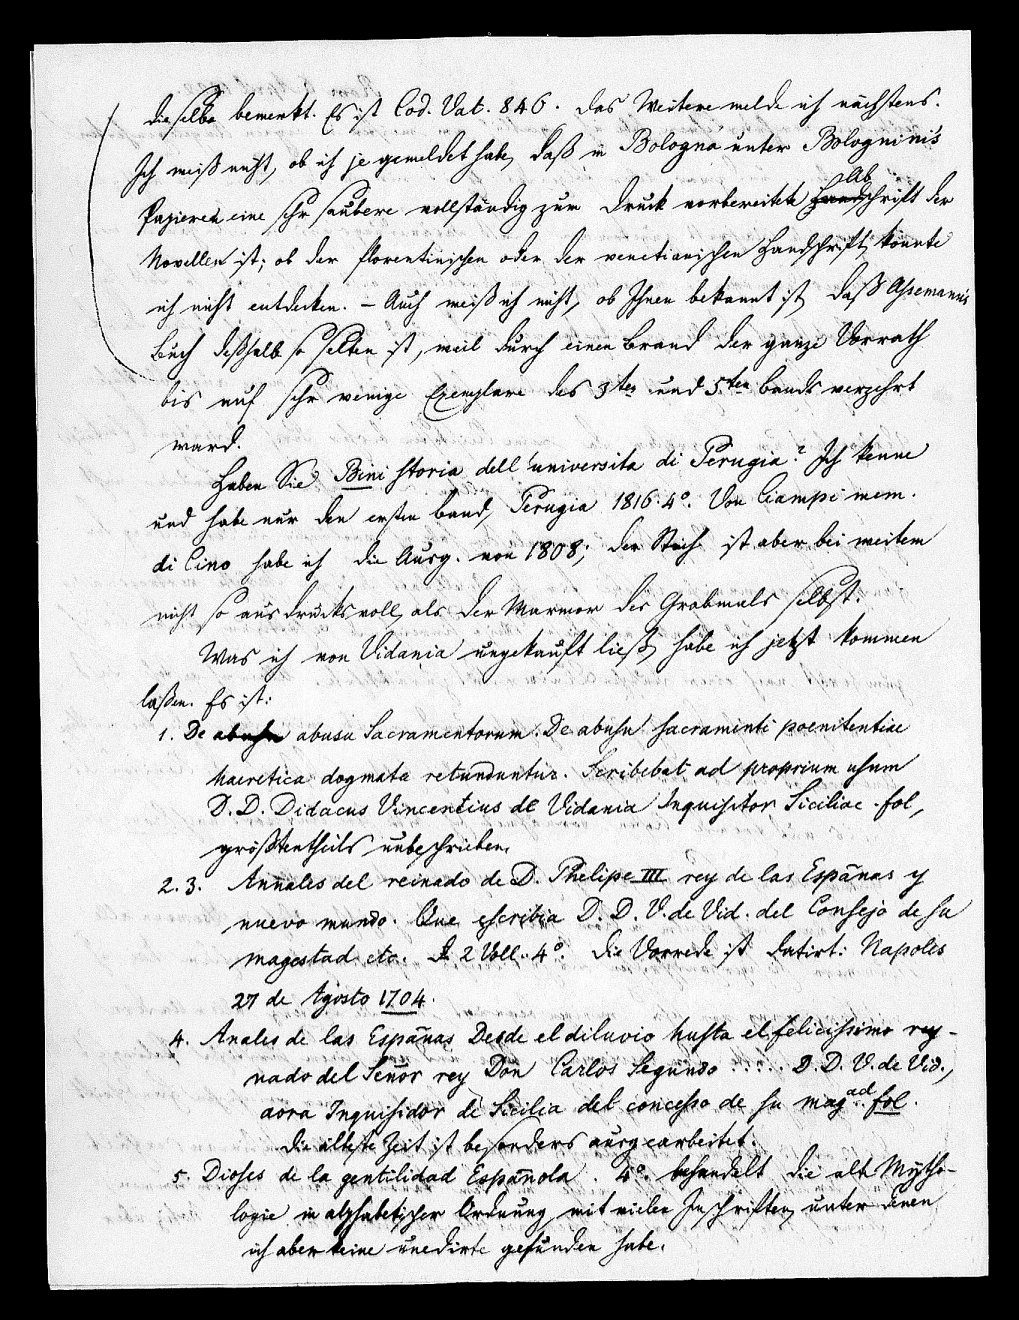 dieselbe bemerkt. Es ist Cod. Vat. 846. Das Weitere melde ich nächstens.
Ich weiß nicht, ob ich je gemeldet habe, daß in Bologna unter Bolognini's
Papieren eine sehr saubere vollständig zum Druck vorbereitete Abschrift der
Novellen ist; ob der florentinischen oder der venetianischen Handschrift, konnte
ich nicht entdecken. – Auch weiß ich nicht, ob Ihnen bekannt ist, daß Assemanni's
Buch deßhalb so selten ist, weil durch einen Brand der ganze Vorrath
bis auf sehr wenige Exemplare des 3ten und 5ten Bands verzehrt
ward.
Haben Sie Bini storia dell'universita di Perugia? Ich kenne
und habe nur den ersten Band, Perugia 1816. 4°. Von Ciampi mem.
di Cino habe ich die Ausg. von 1808; der Stich ist aber bei weitem
nicht so ausdrucksvoll, als der Marmor des Grabmals selbst.
Was ich von Vidania ungekauft ließ, habe ich jetzt kommen
laßen. Es ist:
1. De abusu abusu Sacramentorum. De abusu sacraminti poenitentiae
haeretica dogmata retunduntur. Scribebat ad proprium usum
D. D. Didacus Vincentius de Vidania Inquisitor Siciliae. fol,
größtentheils unbeschrieben.
2. 3. Annales del reinado de D. Phelipe III rey de las Españas y
nuevo mundo. Que escribia D. D. V. de Vid. del Consejo de su
magestad etc. 2 Voll. 4°. Die Vorrede ist datirt: Napoles
27 de Agosto 1704.
4. Anales de las Españas Desde el diluvio husta el felicissimo rey-
nado del Señor rey Don Carlos Segundo ..... D. D. V. de Vid.,
aora Inquisidor de Sicilia del concesso de su magad. fol.
Die älteste Zeit ist besonders ausgearbeitet.
5. Dioses de la gentilidad Española. 4°. behandelt die alte Mytho-
logie in alphabetischer Ordnung mit vielen Inschriften, unter denen
ich aber keine unedirte gefunden habe.